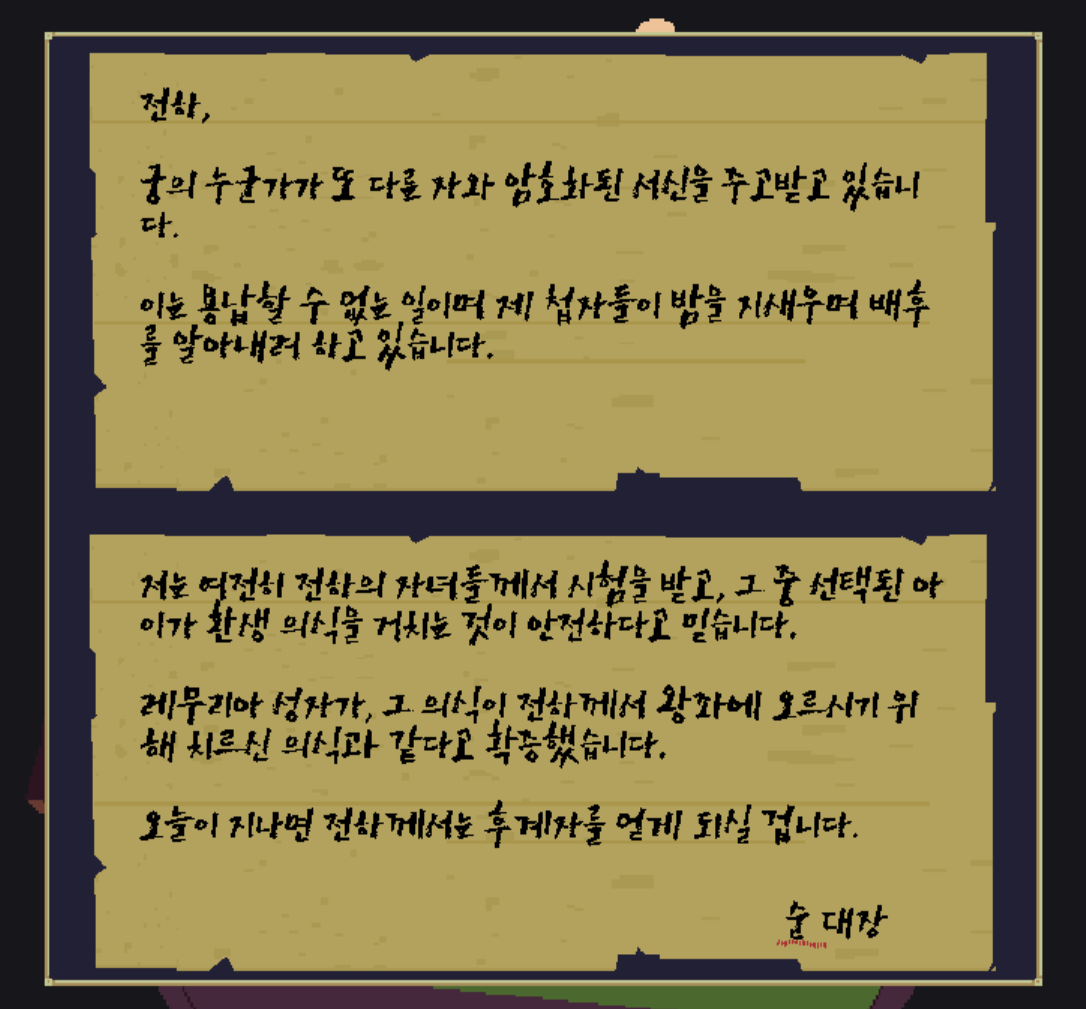 전하,
궁의 누군가가 또 다를 자와 암호화된 서신을 주고받고 있습니
다.
이는 용납할 수 없는 일이며 제 첩자들이 밤을 지새우며 배후
를 알아내려 하고 있습니다.
저는 여전히 전하의 자녀들께서 시험을 받고, 그 중 선택된 아
이가 환생 의식을 거치는 것이 안전하다고 믿습니다.
레무리아 성자가, 그 의식이 전하께서 왕좌에 오르시기 위
해 치르신 의식과 같다고 확증했습니다.
오늘이 지나면 전하께서는 후계자를 얻게 되실 겁니다.
순 대장